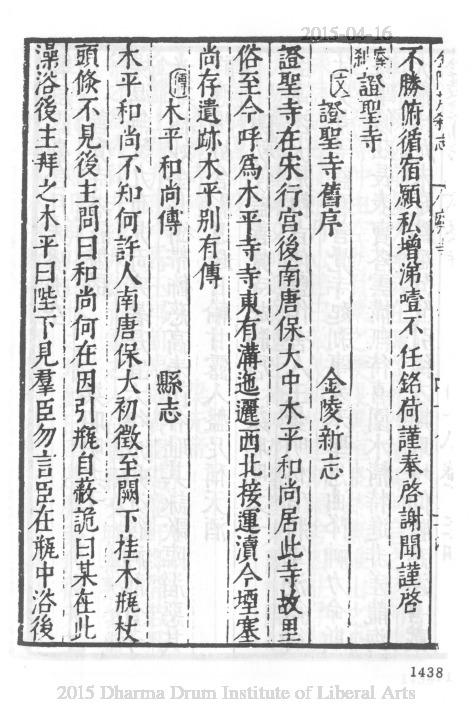 2015-04-16
不勝俯循宿願私增涕噎不任銘荷謹奉啓謝聞謹啓
廢刹 證聖寺
文 證聖寺舊序 金陵新志
證聖寺在宋行宮後南唐保大中木平和尚居此寺故里
俗至今呼爲木平寺寺東有溝迤邐西北接運瀆今堙塞
尚存遺跡木平别有傳
傳 木平和尚傳 縣志
木平和尚不知何許人南唐保大初徵至闕下挂木瓶杖
頭倏不見後主問曰和尚何在因引瓶自蔽詭曰某在此
澡浴後主拜之木平曰陛下見羣臣勿言臣在瓶中浴後
1438
2015 Dharma Drum Institute of Liberal Arts